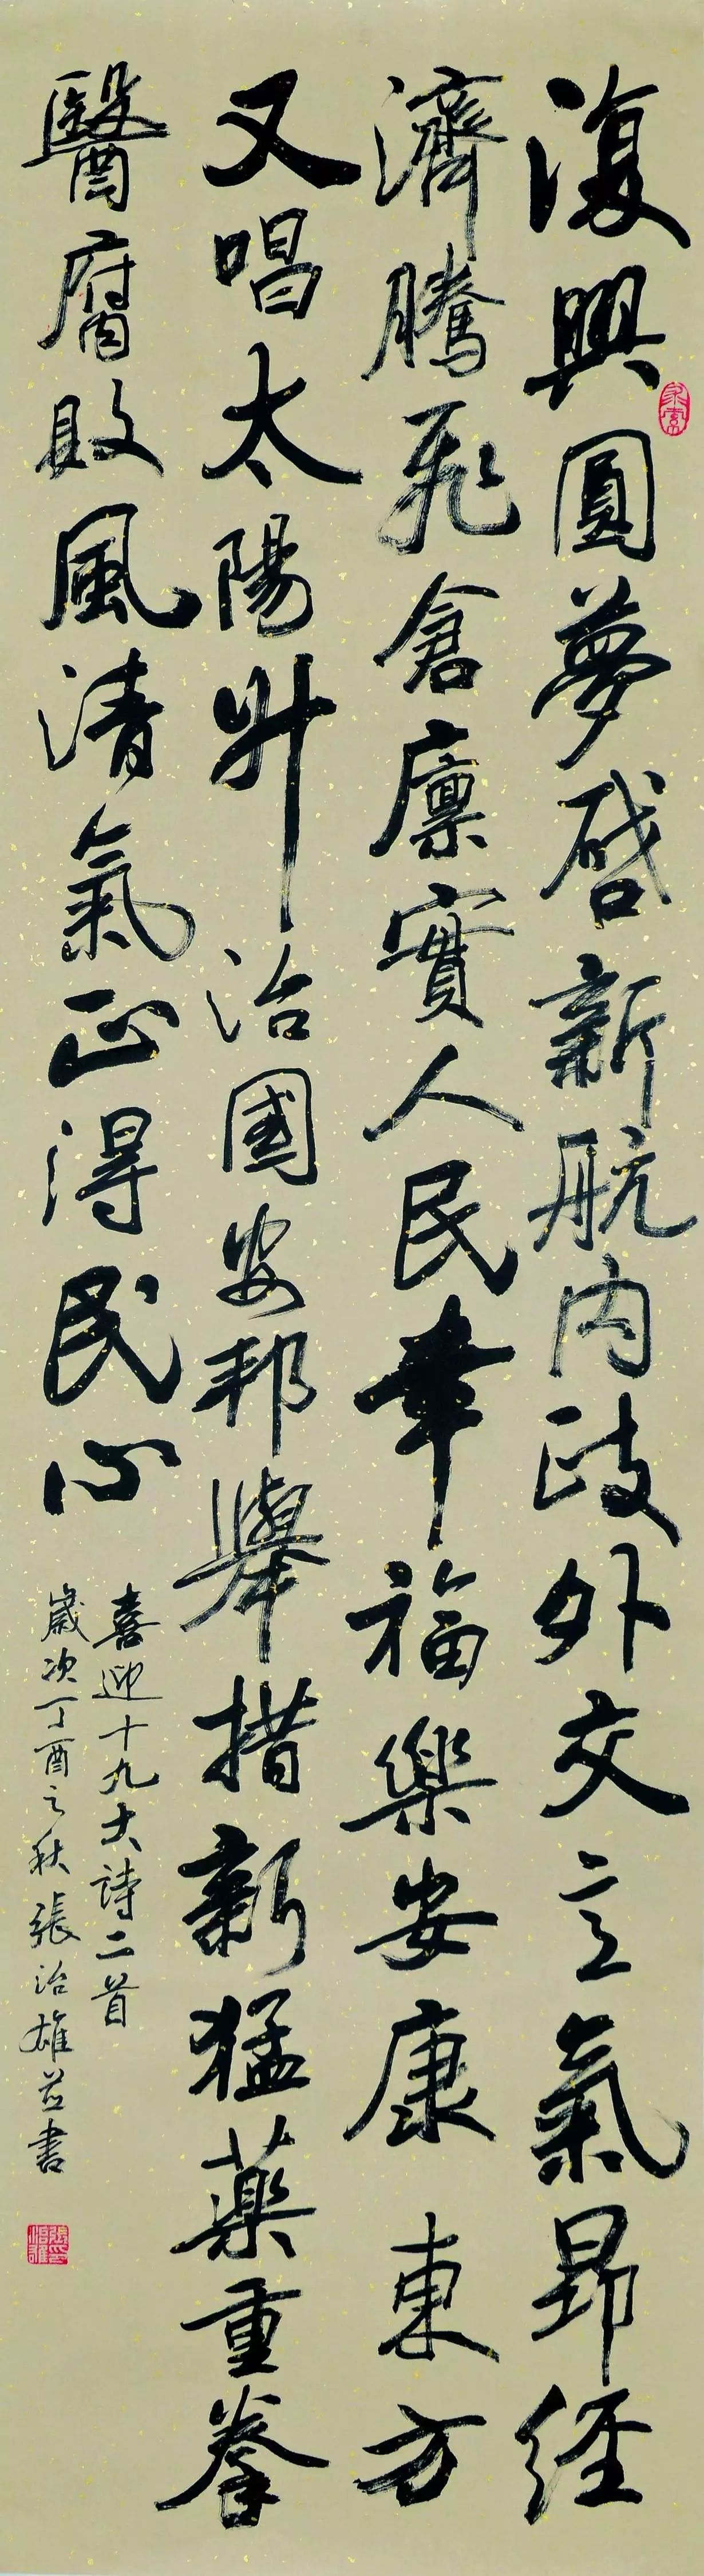 復興圓夢啓新航内政外交立氣昂經
濟騰飛倉廪實人民幸福樂安康東方
又唱太陽升治國安邦舉措新猛藥重拳
醫腐敗風清氣正得民心
喜迎十九大詩二首
歲次丁酉之秋張治雄並書
張治雄印